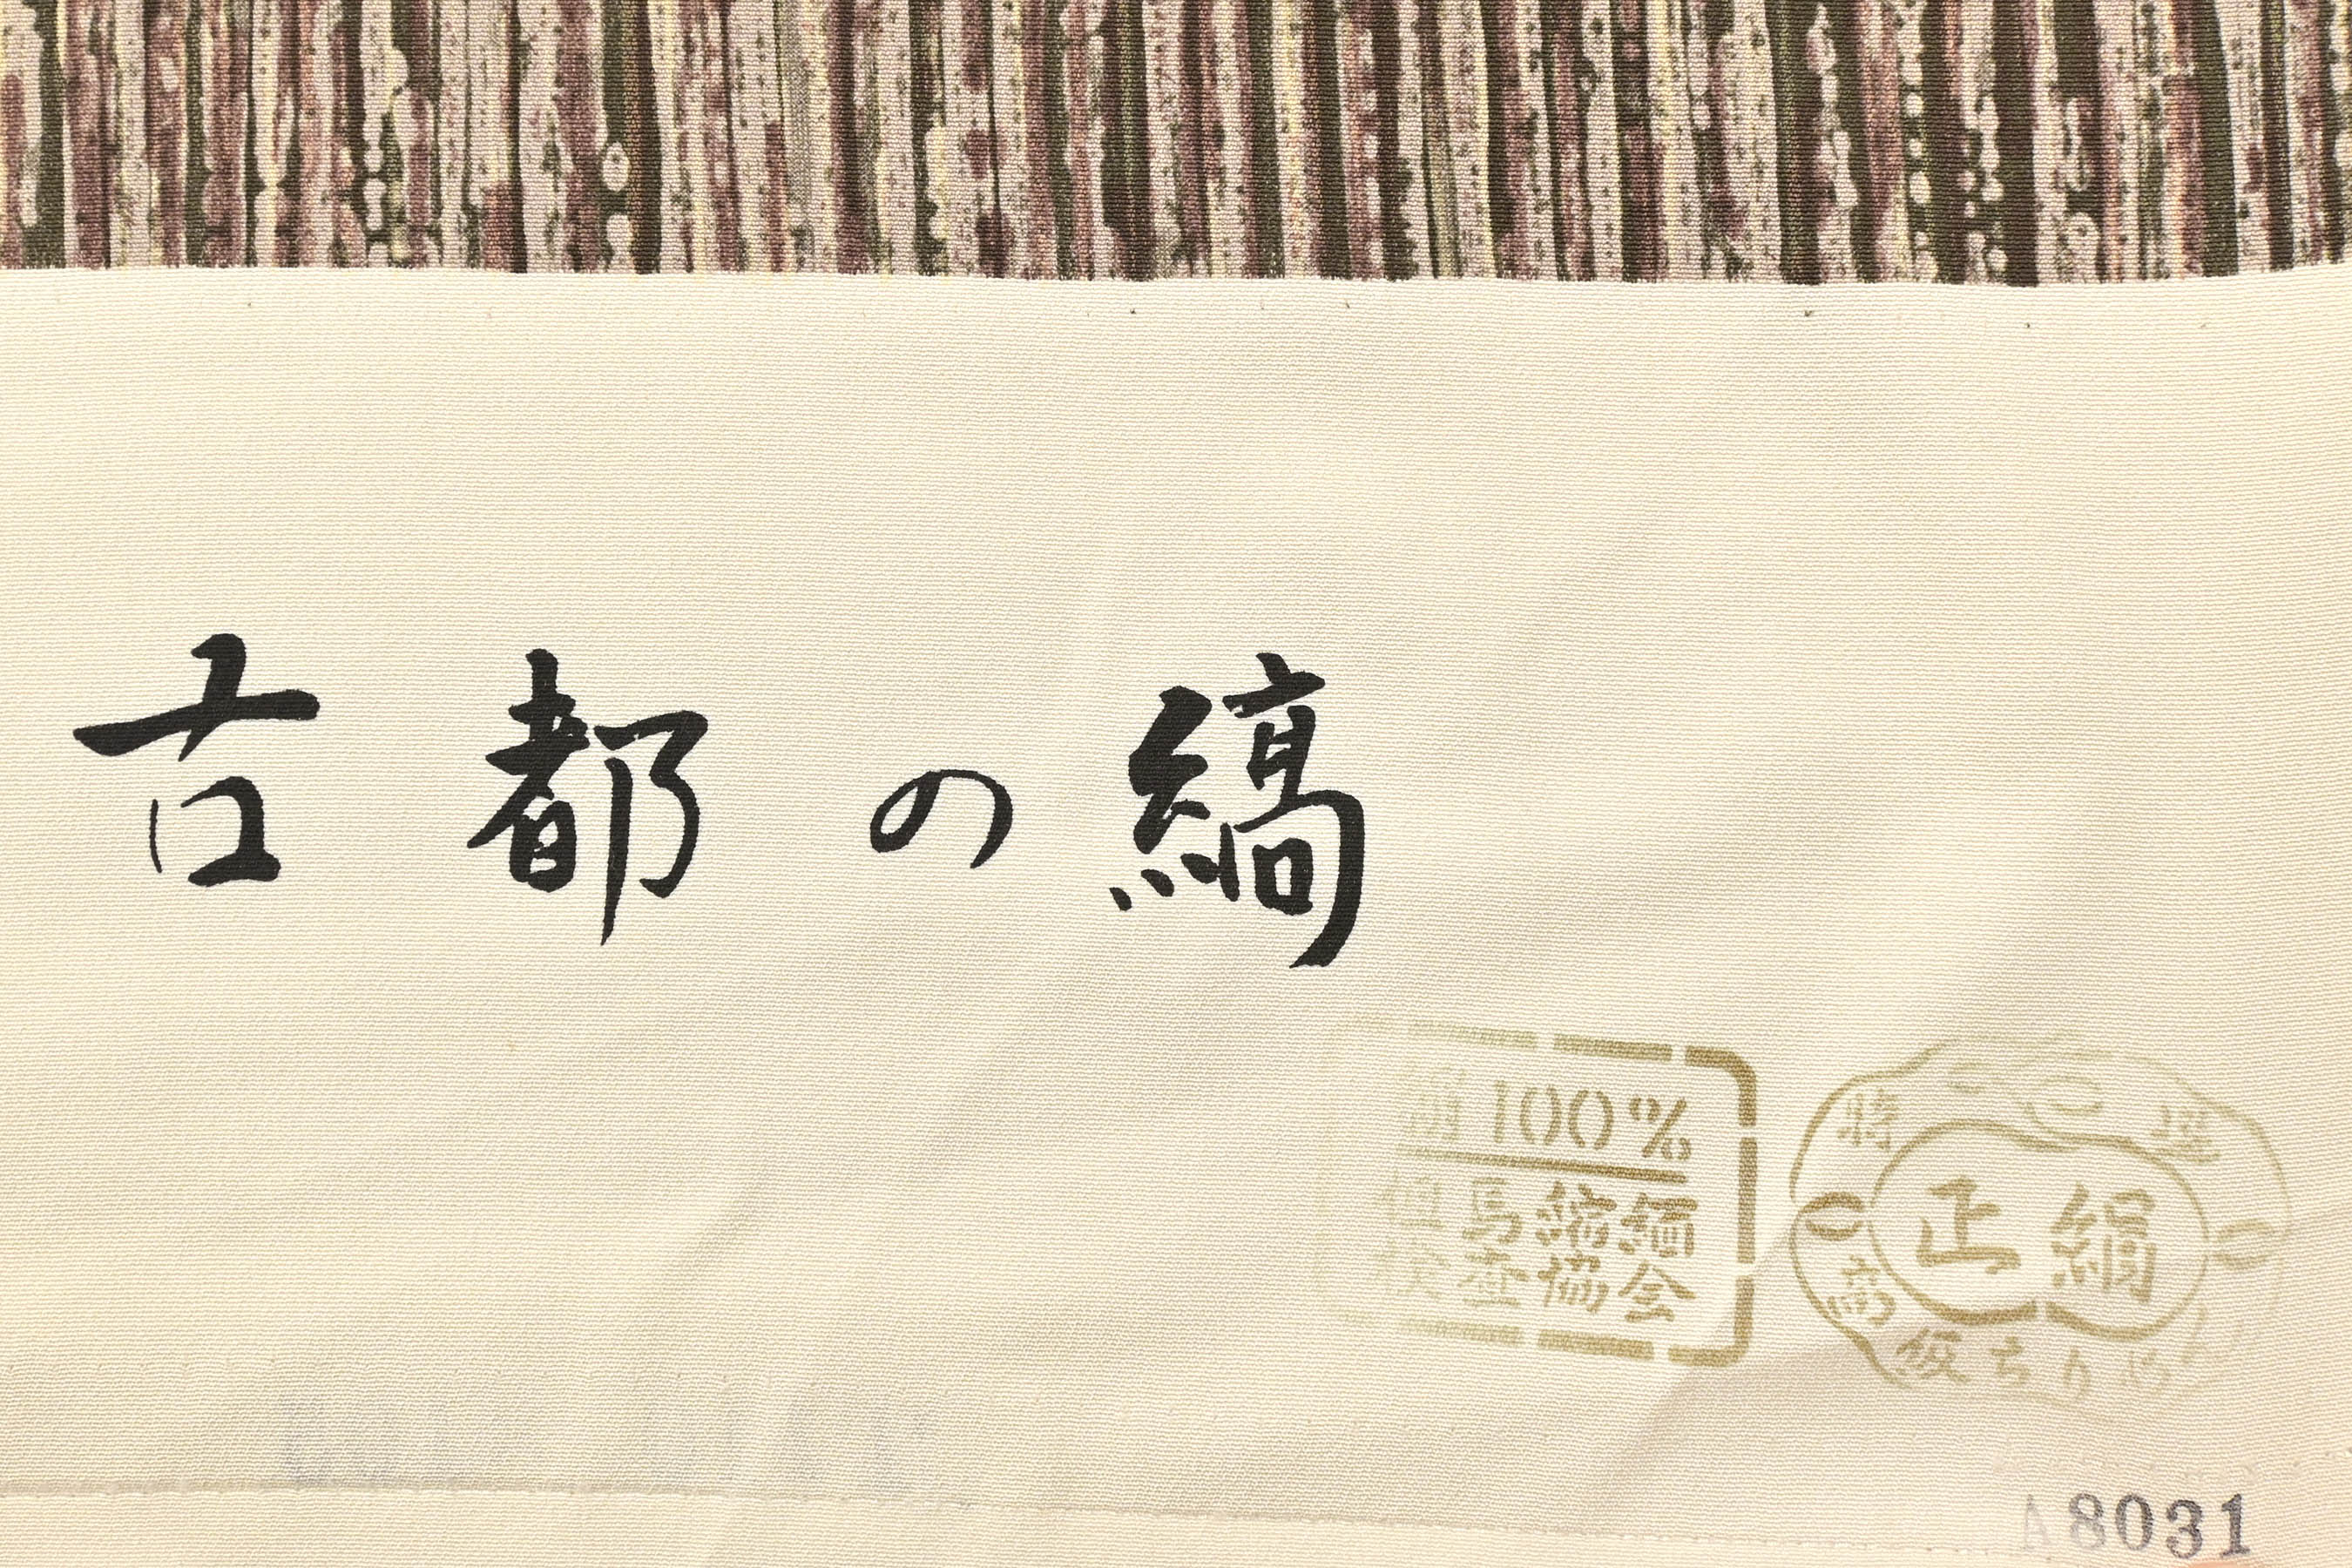 古都の縞
絹100%
但馬縮緬
検査協会
特選
正絹
高級ちりめん
A8031